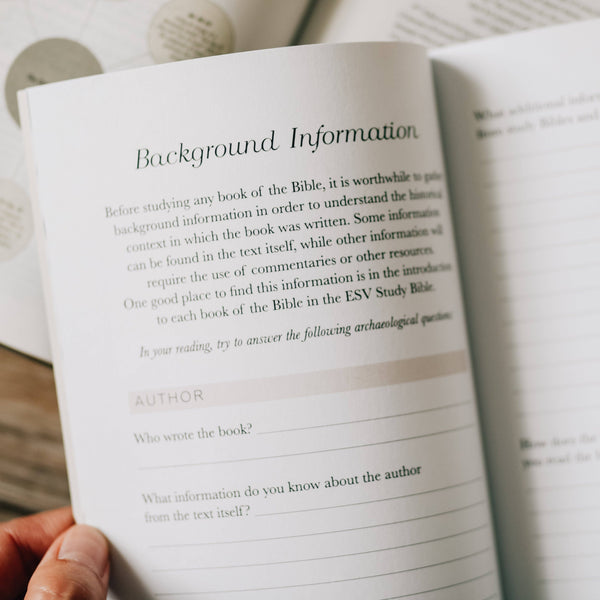 Background Information
Before studying any book of the Bible, it is worthwhile to gather
background information in order to understand the historical
context in which the book was written. Some information
can be found in the text itself, while other information will
require the use of commentaries or other resources.
One good place to find this information is in the introduction
to each book of the Bible in the ESV Study Bible.
In your reading, try to answer the following archaeological questions:
AUTHOR
Who wrote the book?
What information do you know about the author
from the text itself?
What additional
from study Bibles and
How does the
you read the